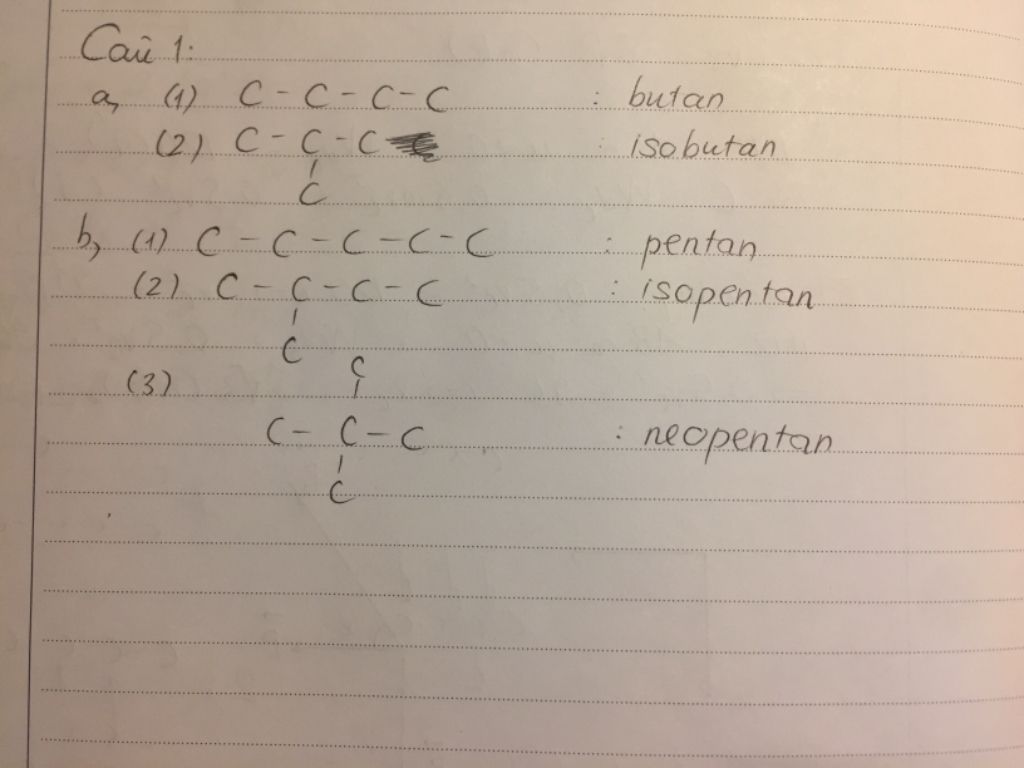 Câu 1:
a, (1) C - C - C - C : butan
(2) C - C - C : isobutan
C
b, (1) C - C - C - C - C : pentan
(2) C - C - C - C : isopentan
C
C
(3)
C - C - C : neopentan
C